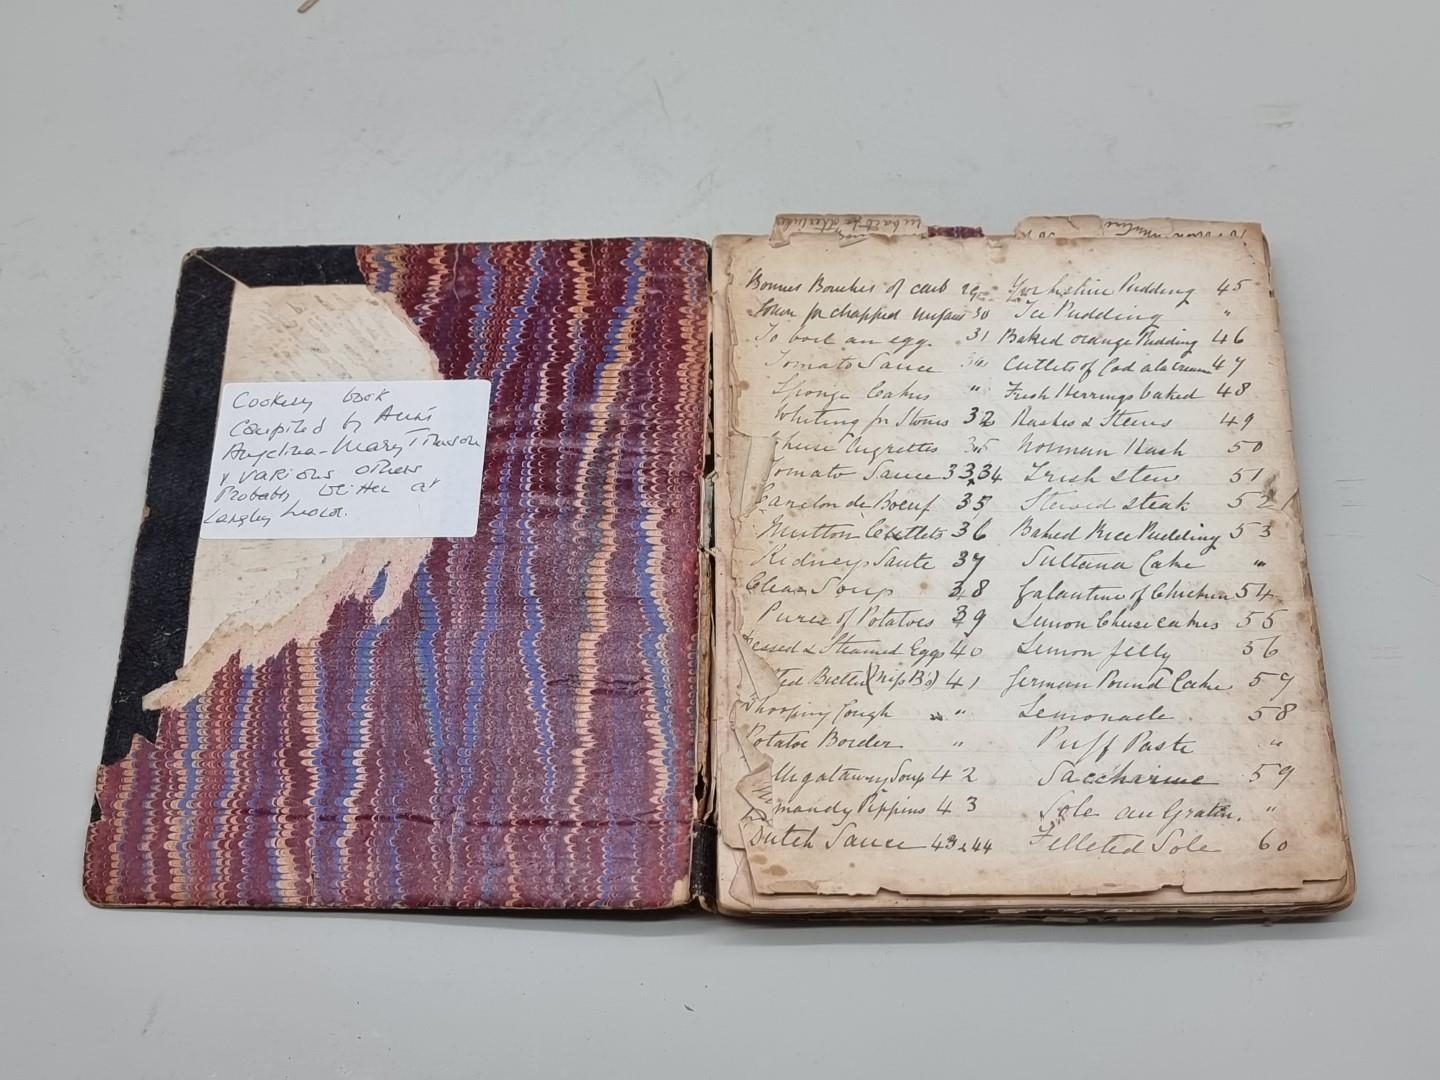 Cookery book
Compiled by Aunt
Angelina-Mary
& various others
Probably written at
Langley
Bonnes Bouches of 29
for chapped 30
To boil an egg. 31
Tomato Sauce "
Sponge Cakes "
Whiting for 32
Tomato Sauce 33,34
de Boeuf 35
Mutton Cutlets 36
Kidneys Saute 37
Clear Soup 38
Puree of Potatoes 39
& Steamed Eggs 40
41
Whooping Cough "
Potatoe Border "
Soup 42
Pippins 43
Dutch Sauce 43 & 44
Yorkshire Pudding 45
Ice Pudding "
Baked orange Pudding 46
Cutlets of Cod a la 47
Fresh Herrings baked 48
49
Norman Hash 50
Irish Stew 51
Stewed Steak 52
Baked Rice Pudding 53
Sultana Cake "
Galantine of Chicken 54
Lemon Cheesecakes 55
Lemon Jelly 56
German Pound Cake 57
Lemonade 58
Puff Paste "
Saccharine 59
Sole au Gratin. "
Filleted Sole 60